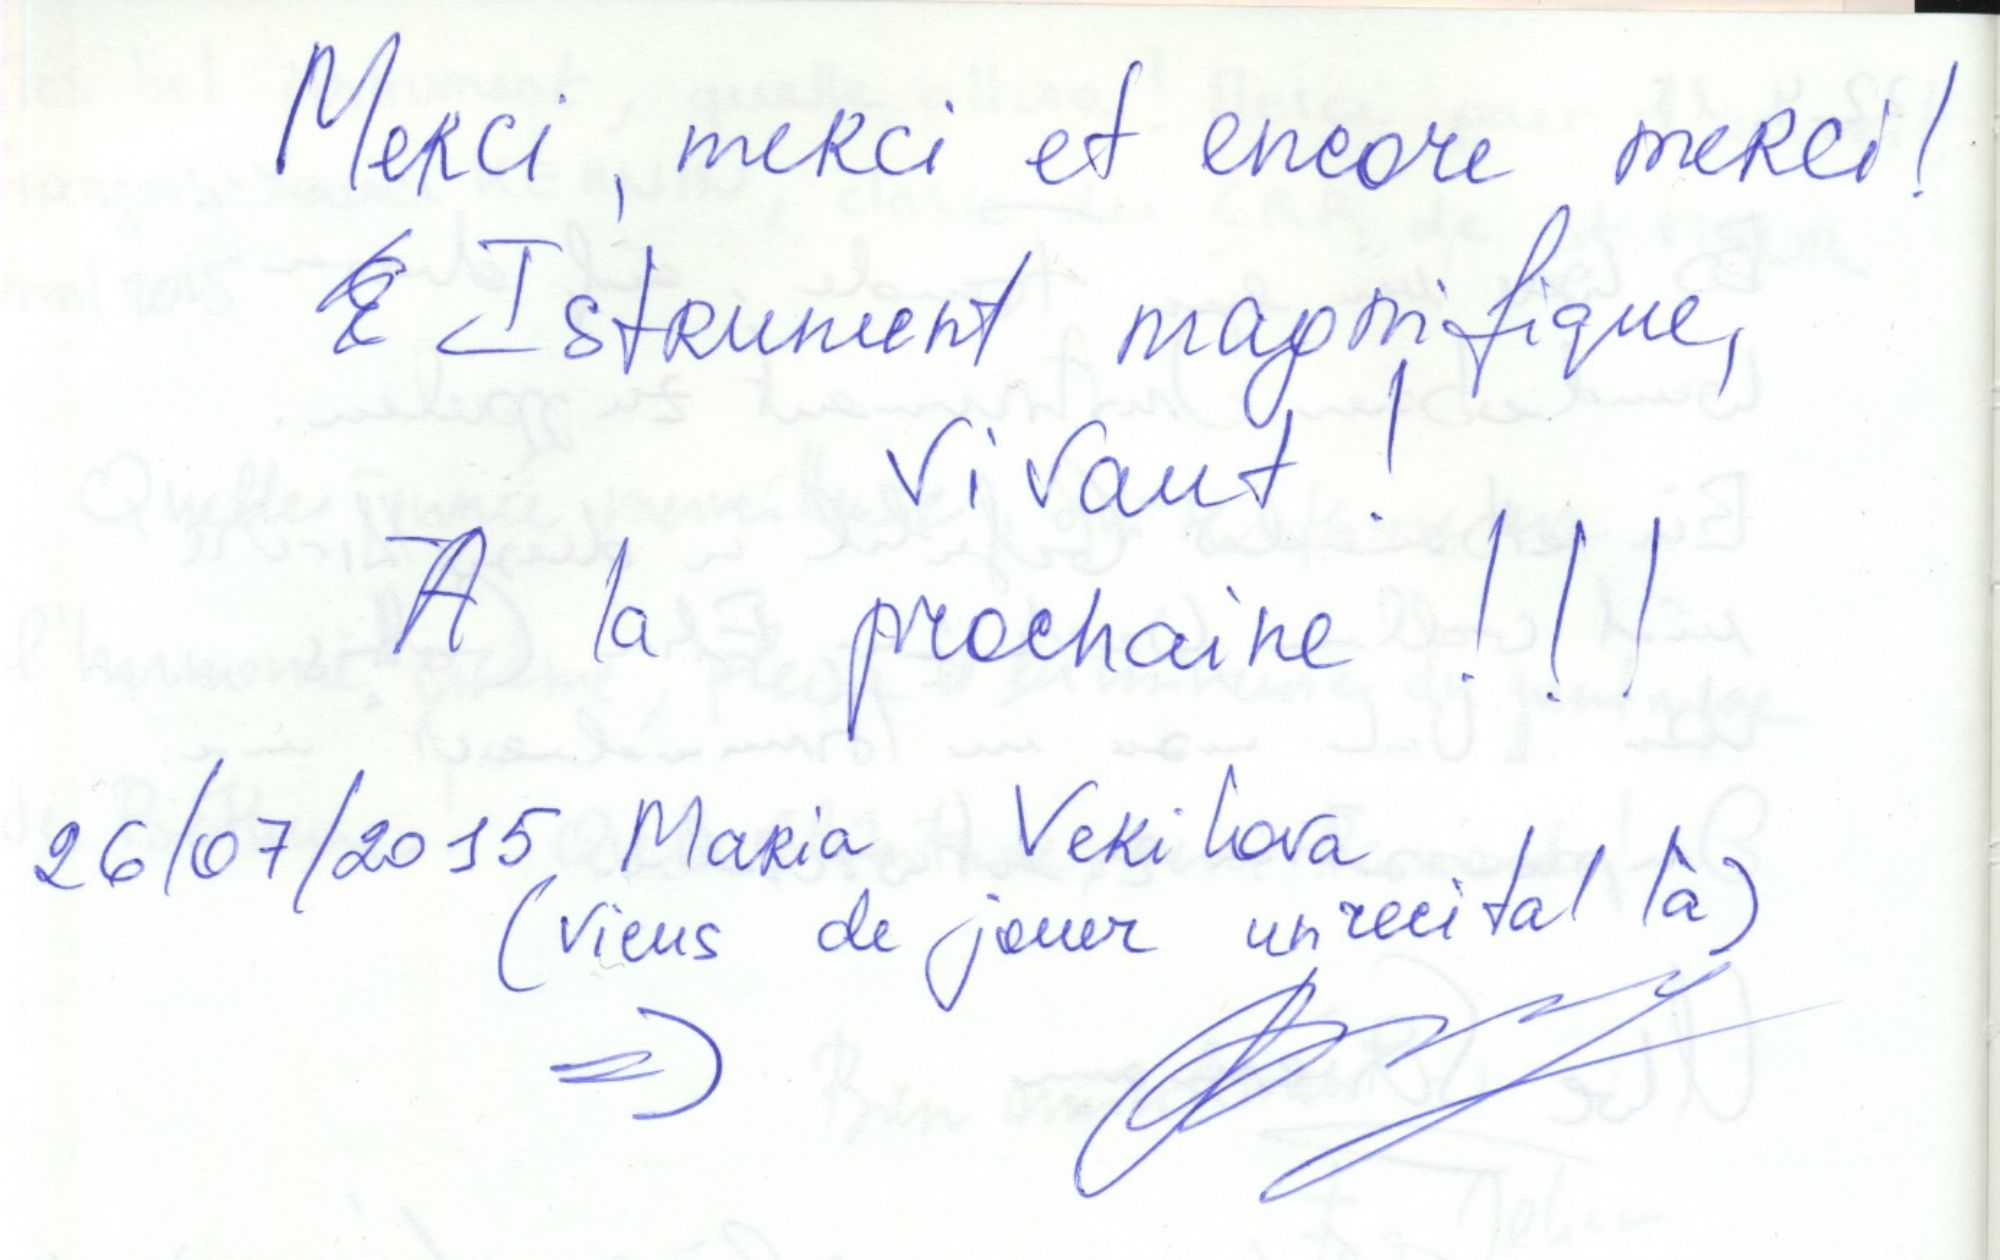 Merci, merci et encore merci!
Istrument magnifique,
vivant!
A la prochaine!!!
26/07/2015 Maria Vekilova
(viens de jouer un recital là)
=)